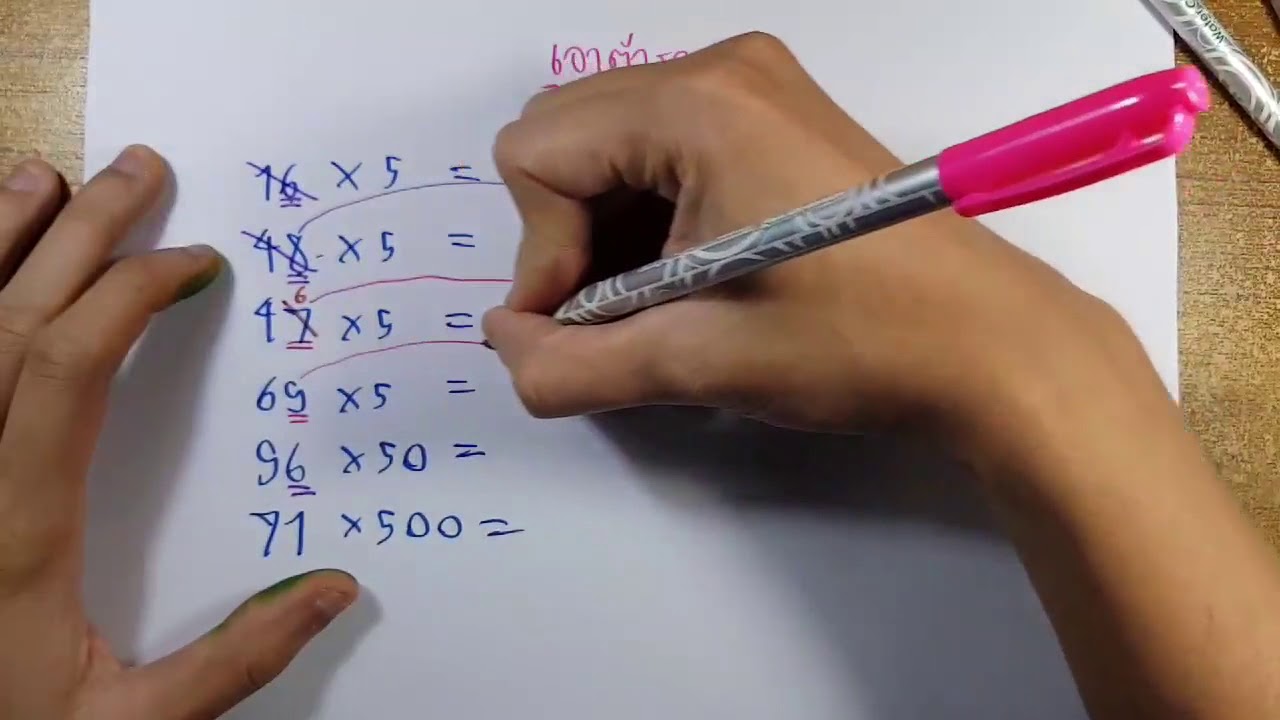 เอาตัว
16 × 5 =
48 × 5 =
6
47 × 5 =
69 × 5 =
96 × 50 =
71 × 500 =